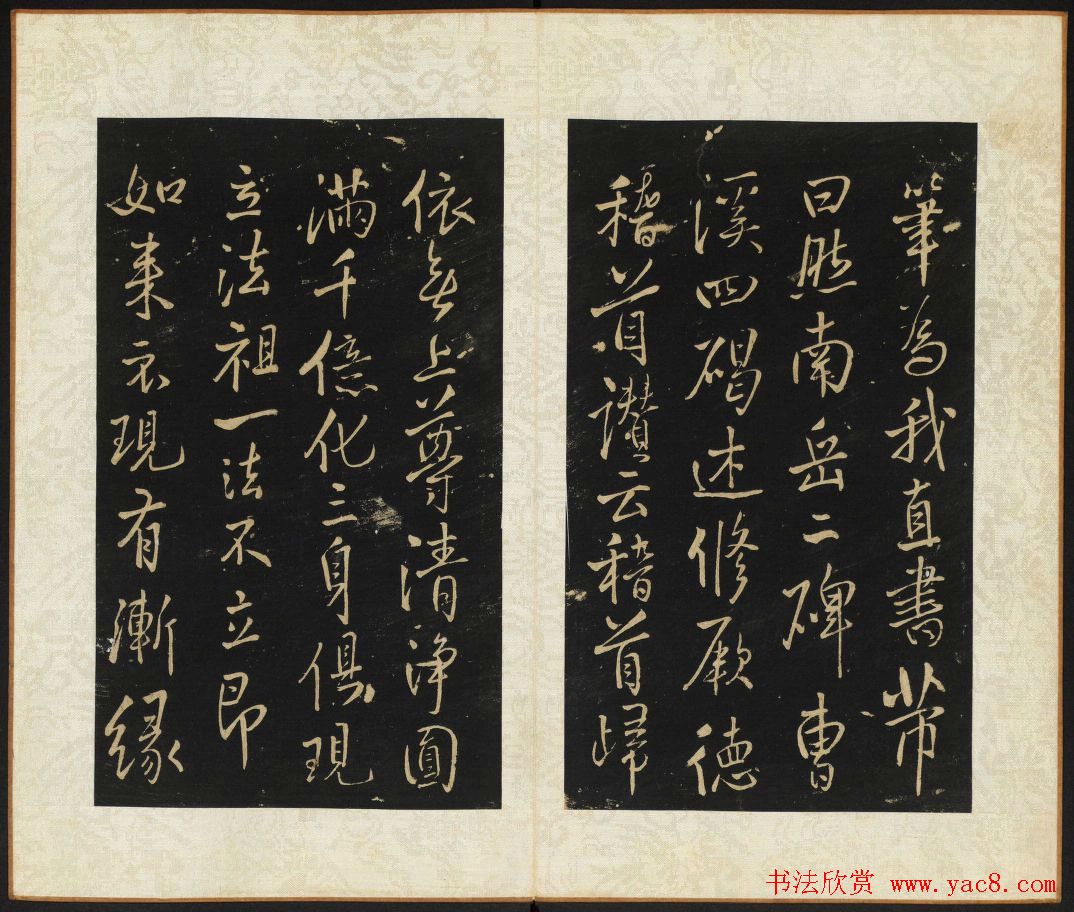 筆為我直書芾
曰照南岳二碑曹
溪四碣述修厥德
稽首讃云稽首歸
依無上尊清淨圓
滿千億化三身俱現
立法祖一法不立即
如來示現有漸緣
书法欣赏 www.yac8.com